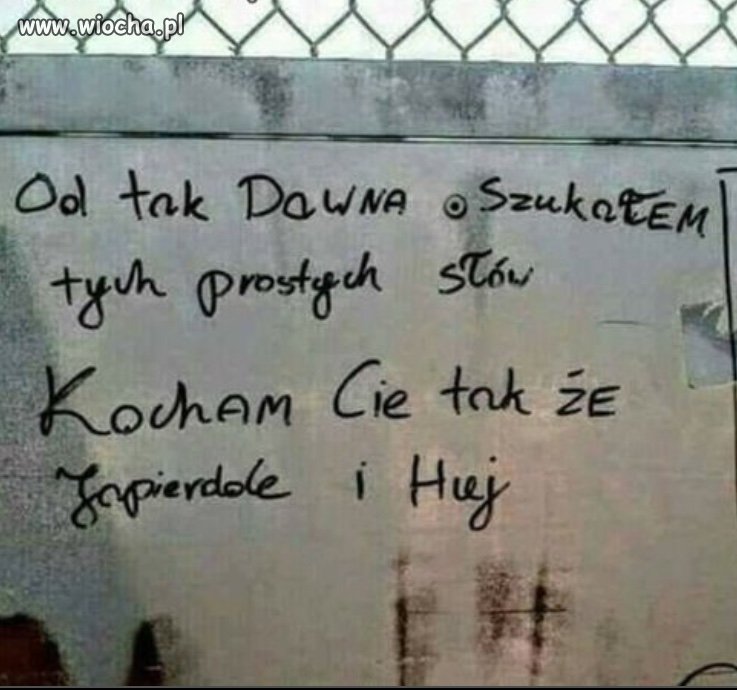 www.wiocha.pl
Od tak DawNA Szukałem
tych prostych słów
KochAM Cie tak że
Zapierdole i Huj